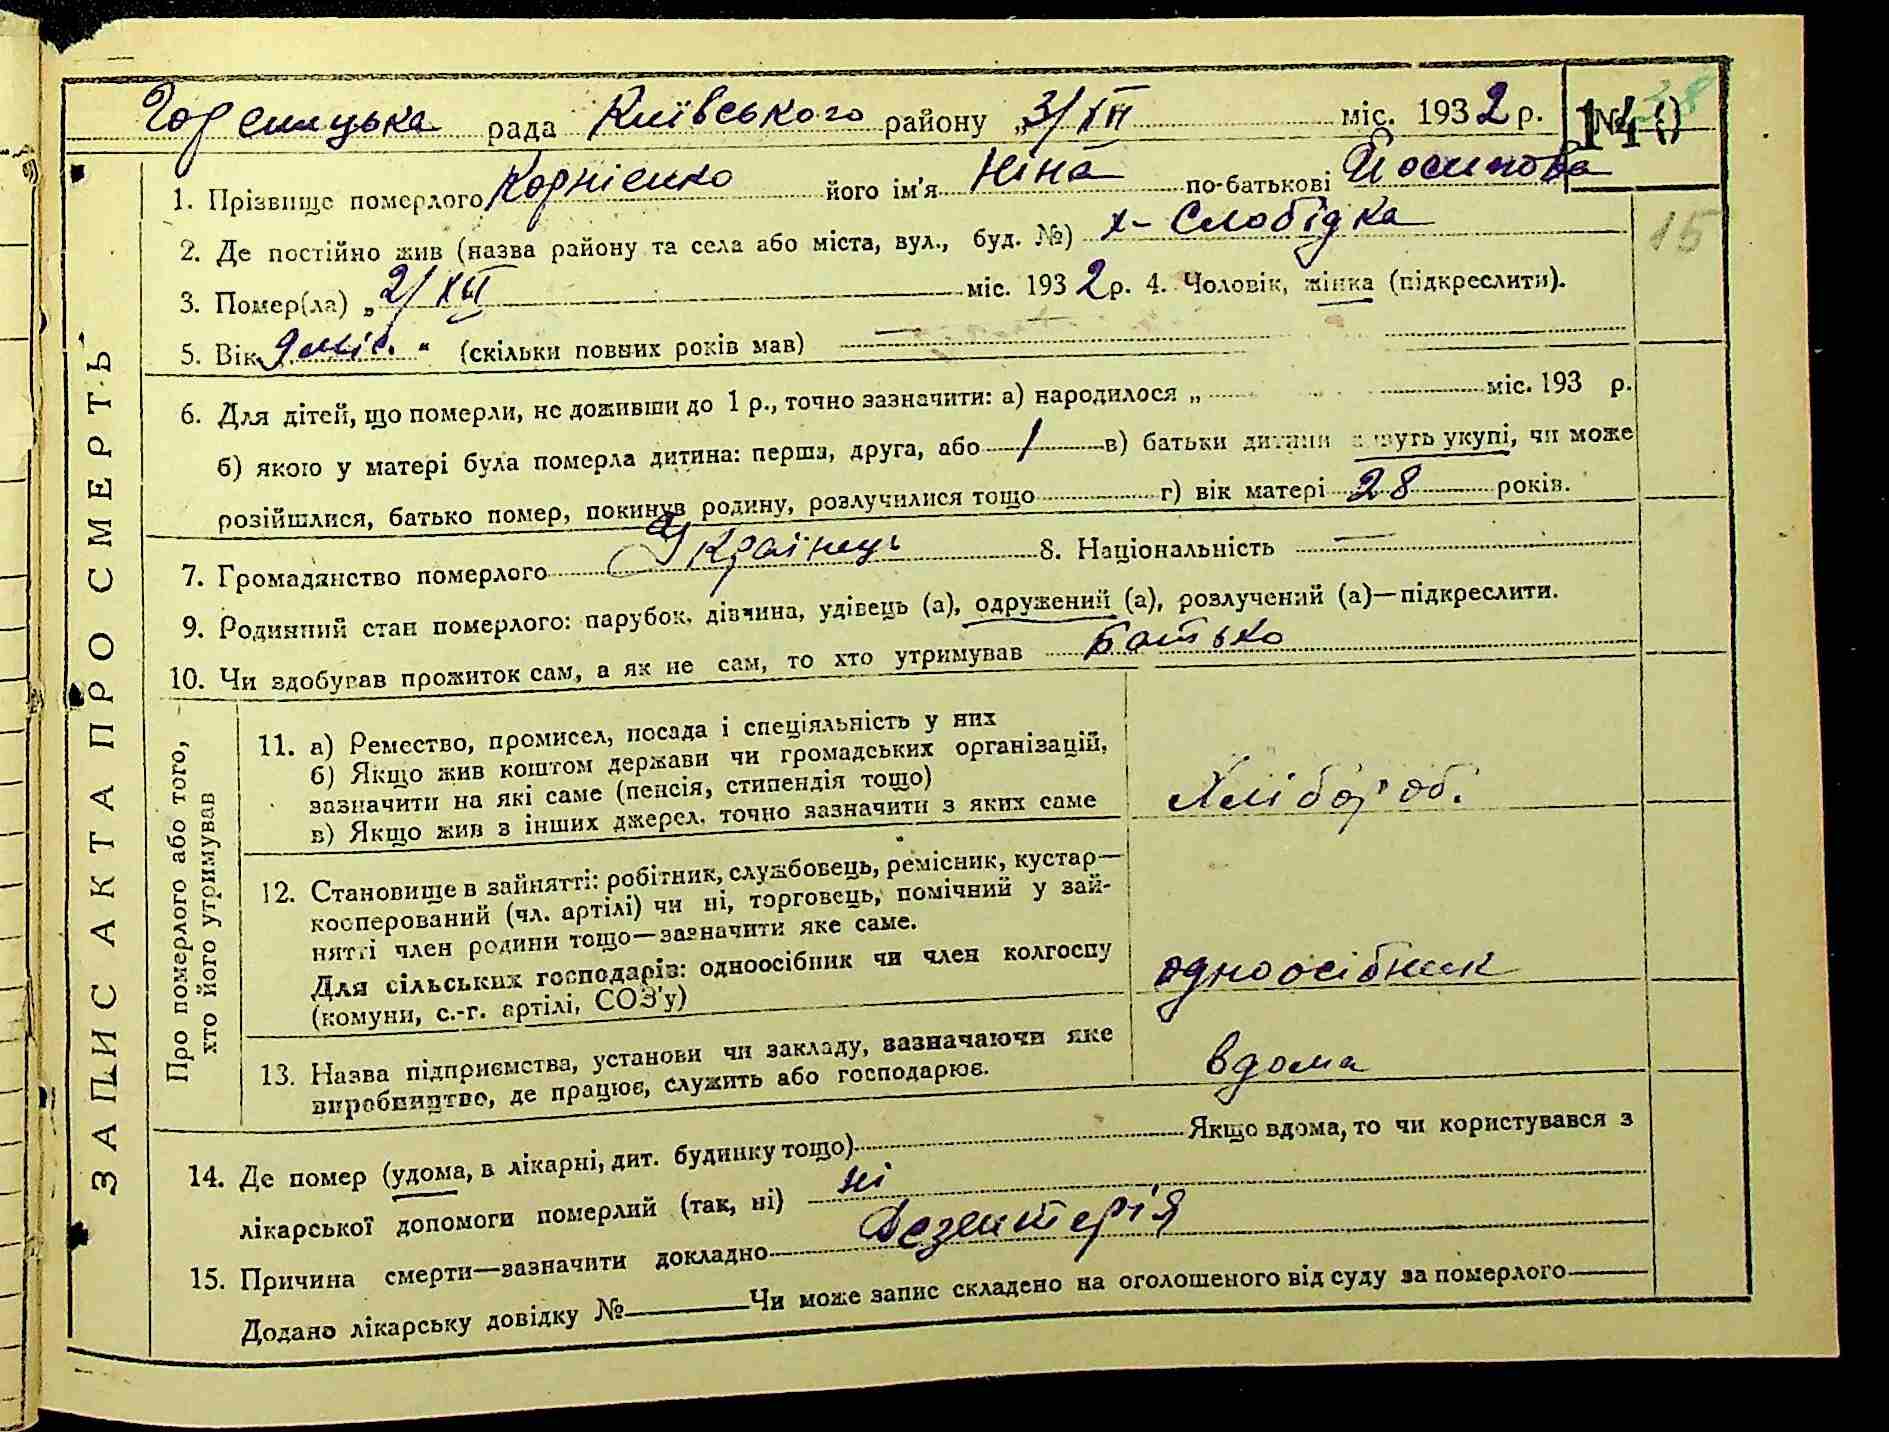 Гореницька рада Київського району „3/XII міс. 1932 р. № 140
28
1. Прізвище померлого Корнієнко його ім'я Ніна по-батькові Йосипова
2. Де постійно жив (назва району та села або міста, вул., буд. №) х-Слобідка
15
3. Помер(ла) „2/XII міс. 1932 р. 4. Чоловік, жінка (підкреслити).
5. Вік 9 міс. “ (скільки повних років мав) —
6. Для дітей, що померли, не доживши до 1 р., точно зазначити: а) народилося „ міс. 193 р.
б) якою у матері була померла дитина: перша, друга, або 1 в) батьки дитини живуть укупі, чи може
розійшлися, батько помер, покинув родину, розлучилися тощо г) вік матері 28 років.
7. Громадянство померлого Українець 8. Національність —
9. Родинний стан померлого: парубок, дівчина, удівець (а), одружений (а), розлучений (а)—підкреслити.
10. Чи здобував прожиток сам, а як не сам, то хто утримував батько
ЗАПИС АКТА ПРО СМЕРТЬ
Про померлого або того,
хто його утримував
11. а) Ремество, промисел, посада і спеціяльність у них
б) Якщо жив коштом держави чи громадських організацій,
зазначити на які саме (пенсія, стипендія тощо)
в) Якщо жив з інших джерел, точно зазначити з яких саме
Хлібороб.
12. Становище в зайнятті: робітник, службовець, ремісник, кустар—
кооперований (чл. артілі) чи ні, торговець, помічний у зай-
нятті член родини тощо—зазначити яке саме.
Для сільських господарів: одноосібник чи член колгоспу
(комуни, с.-г. артілі, СОЗ'у)
одноосібник
13. Назва підприємства, установи чи закладу, зазначаючи яке
виробництво, де працює, служить або господарює.
вдома
14. Де помер (удома, в лікарні, дит. будинку тощо) Якщо вдома, то чи користувався з
лікарської допомоги померлий (так, ні) ні
15. Причина смерти—зазначити докладно Дезентерія
Додано лікарську довідку №— Чи може запис складено на оголошеного від суду за померлого—